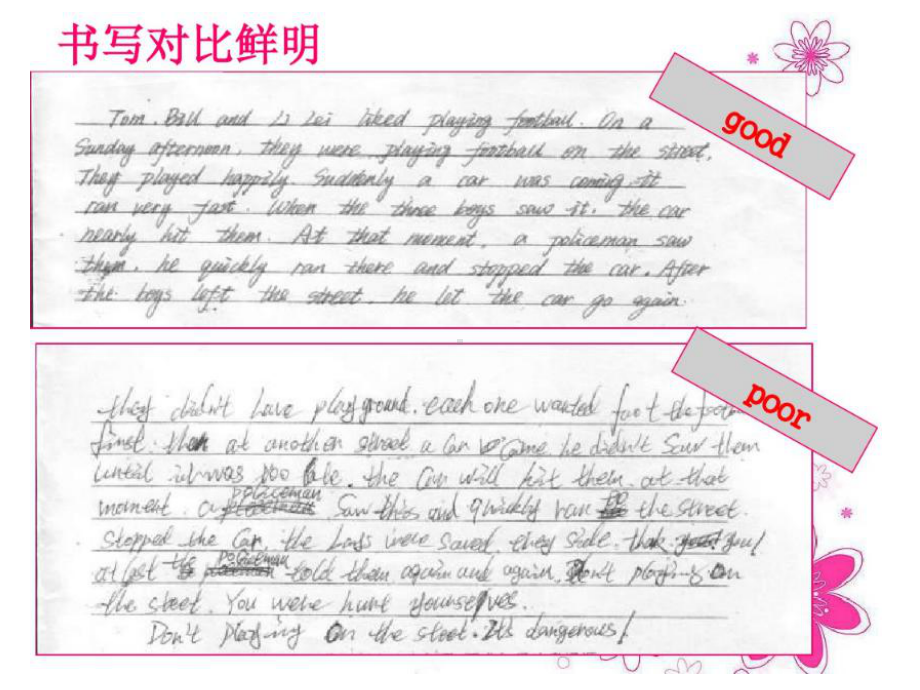 书写对比鲜明
good
Tom. Bill and Li Lei liked playing football. On a
Sunday afternoon, they were playing football on the street.
They played happily. Suddenly a car was coming. it
ran very fast. When the three boys saw it, the car
nearly hit them. At that moment, a policeman saw
them. he quickly ran there and stopped the car. After
the boys left the street, he let the car go again.
poor
they didn't have playground. each one wanted foot the
first. then at another street a car came he didn't Saw them
until it was too late. the Car will hit them. at that
moment. a policeman Saw this and quickly ran to the street.
Stopped the Car. the boys were saved. they side. thank you!
at last the policeman told them again and again. Don't playing on
the steet. You were hurt yourselves.
Don't playing On the steet. It's dangerous!